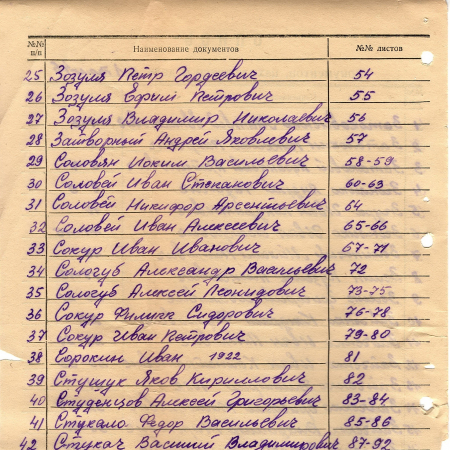 №№ п/п Наименование документов №№ листов
25 Зозуля Петр Гордеевич 54
26 Зозуля Ефрим Петрович 55
27 Зозуля Владимир Николаевич 56
28 Затворный Андрей Яковлевич 57
29 Соловян Иоким Васильевич 58-59
30 Соловей Иван Степанович 60-63
31 Соловей Никифор Арсентьевич 64
32 Соловей Иван Алексеевич 65-66
33 Сокур Иван Иванович 67-71
34 Сологуб Александр Васильевич 72
35 Сологуб Алексей Леонидович 73-75
36 Сокур Филипп Сидорович 76-78
37 Сокур Иван Петрович 79-80
38 Сорокин Иван 1922 81
39 Стущук Яков Кириллович 82
40 Студенцов Алексей Григорьевич 83-84
41 Стукало Федор Васильевич 85-86
42 Стукач Василий Владимирович 87-92